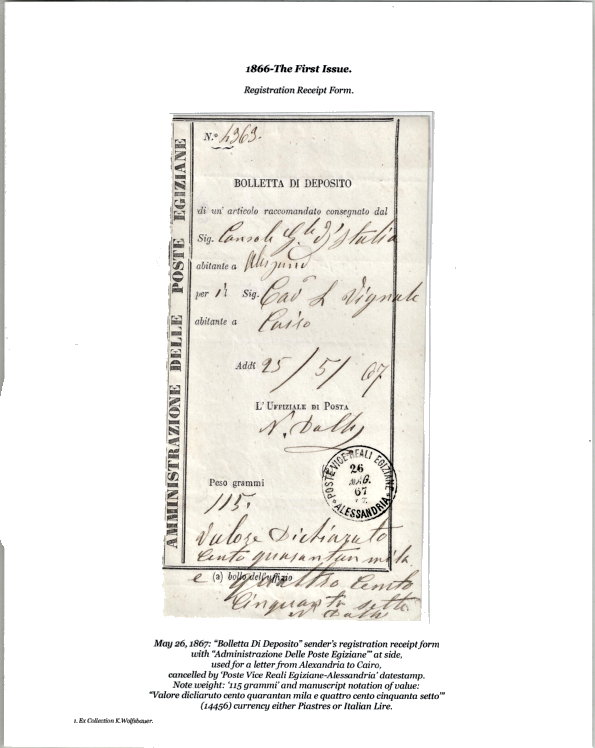 1866-The First Issue.
Registration Receipt Form.
AMMINISTRAZIONE DELLE POSTE EGIZIANE
N.º 4363.
BOLLETTA DI DEPOSITO
di un' articolo raccomandato consegnato dal
Sig. Console Gle d'Italia
abitante a
per il Sig. Cavr L Vignale
abitante a Cairo
Addì 25/5/67
L'UFFIZIALE DI POSTA
Peso grammi
115.
POSTE VICE REALI EGIZIANE
26
MAG.
67
ALESSANDRIA
Valore Dichiarato
Cento quarantun mila
e quattro Cento
(a) bollo dell'uffizio
Cinquanta sette
May 26, 1867: "Bolletta Di Deposito" sender's registration receipt form
with "Administrazione Delle Poste Egiziane'" at side,
used for a letter from Alexandria to Cairo,
cancelled by 'Poste Vice Reali Egiziane-Alessandria' datestamp.
Note weight: '115 grammi' and manuscript notation of value:
"Valore dicliaruto cento quarantan mila e quattro cento cinquanta setto'"
(14456) currency either Piastres or Italian Lire.
1. Ex Collection K.Wolfsbauer.